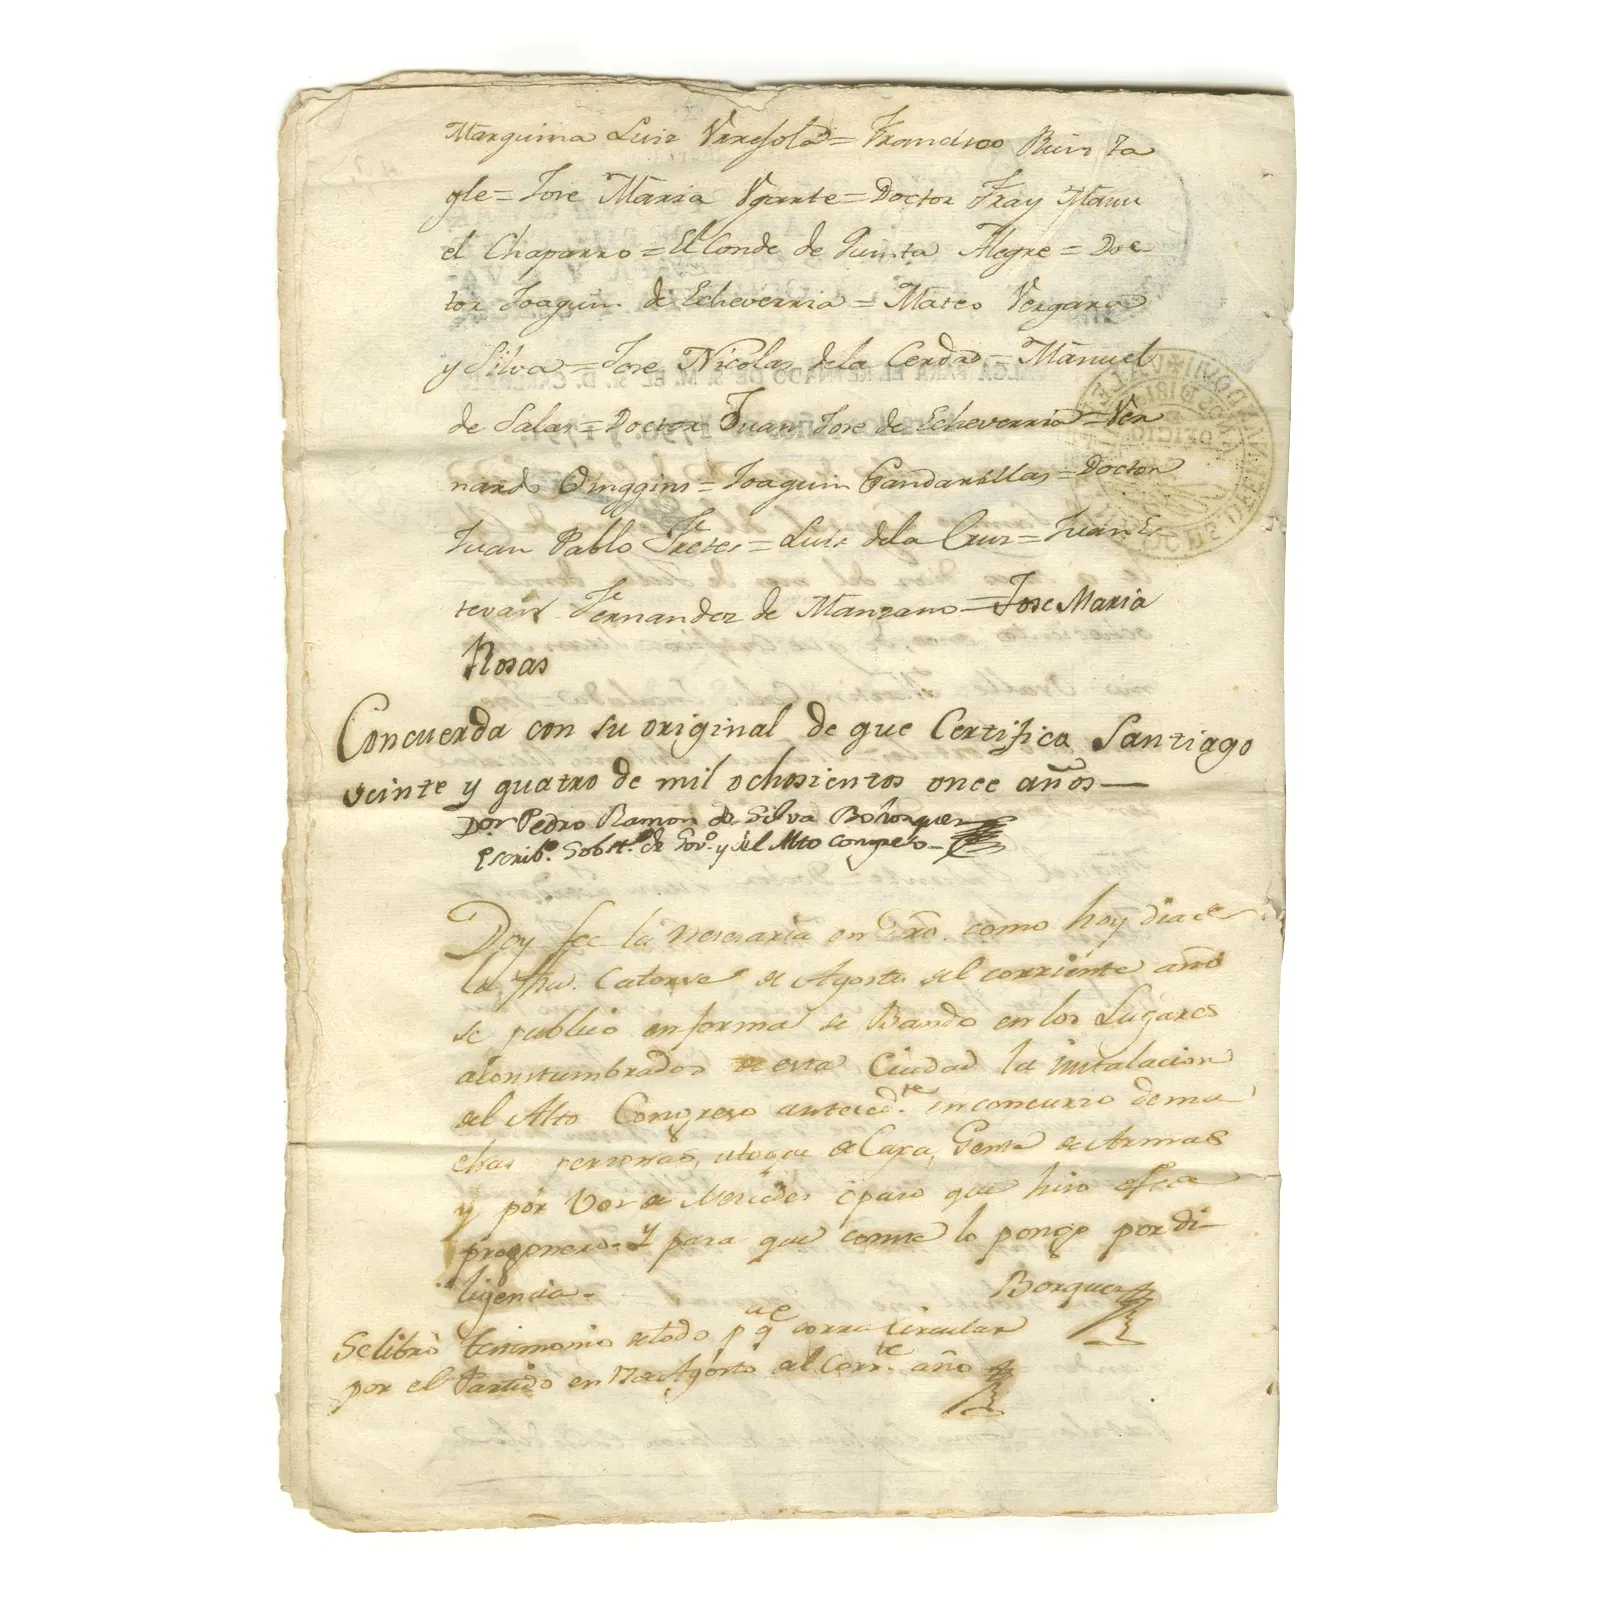 Marquina Luis Vrresola = Francisco Ruis Ta
gle = Jose Maria Vgarte = Doctor Fray Manu
el Chaparro = El Conde de Quinta Alegre = Doc
tor Joaquin de Echeverria = Mateo Vergara
y Silva = Jose Nicolas de la Cerda = Manuel
de Salas = Doctor Juan Jose de Echeverria = Ver
nardo Origgins = Joaquin Gandarillas = Doctor
Juan Pablo Fretes = Luis de la Cruz = Juan Es
tevan Fernandez de Manzano = Jose Maria
Rosas
Concuerda con su original de que Certifico Santiago
veinte y quatro de mil ochosientos once años —
Dor Pedro Ramon de Silva Bohorquez
Escribo. Sobsto. de Govo. y del Alto Congreso
Doy fee la nesesaria en dro. como hoy dia de
la fha. Catorse de Agosto del corriente año
se publico en forma de Bando en los Lugares
acostumbrados de esta Ciudad la instalacion
del Alto Congreso anteced.te in concurso de mu
chas personas, a toque de Caxa, Gente de Armas
y por Vos de que hiso
y para que conste lo pongo por di-
ligencia.
Borquez
Se libró testimonio de todo p.a q.e corra Circular
por el Partido en 17 de Agosto del Corr.te año